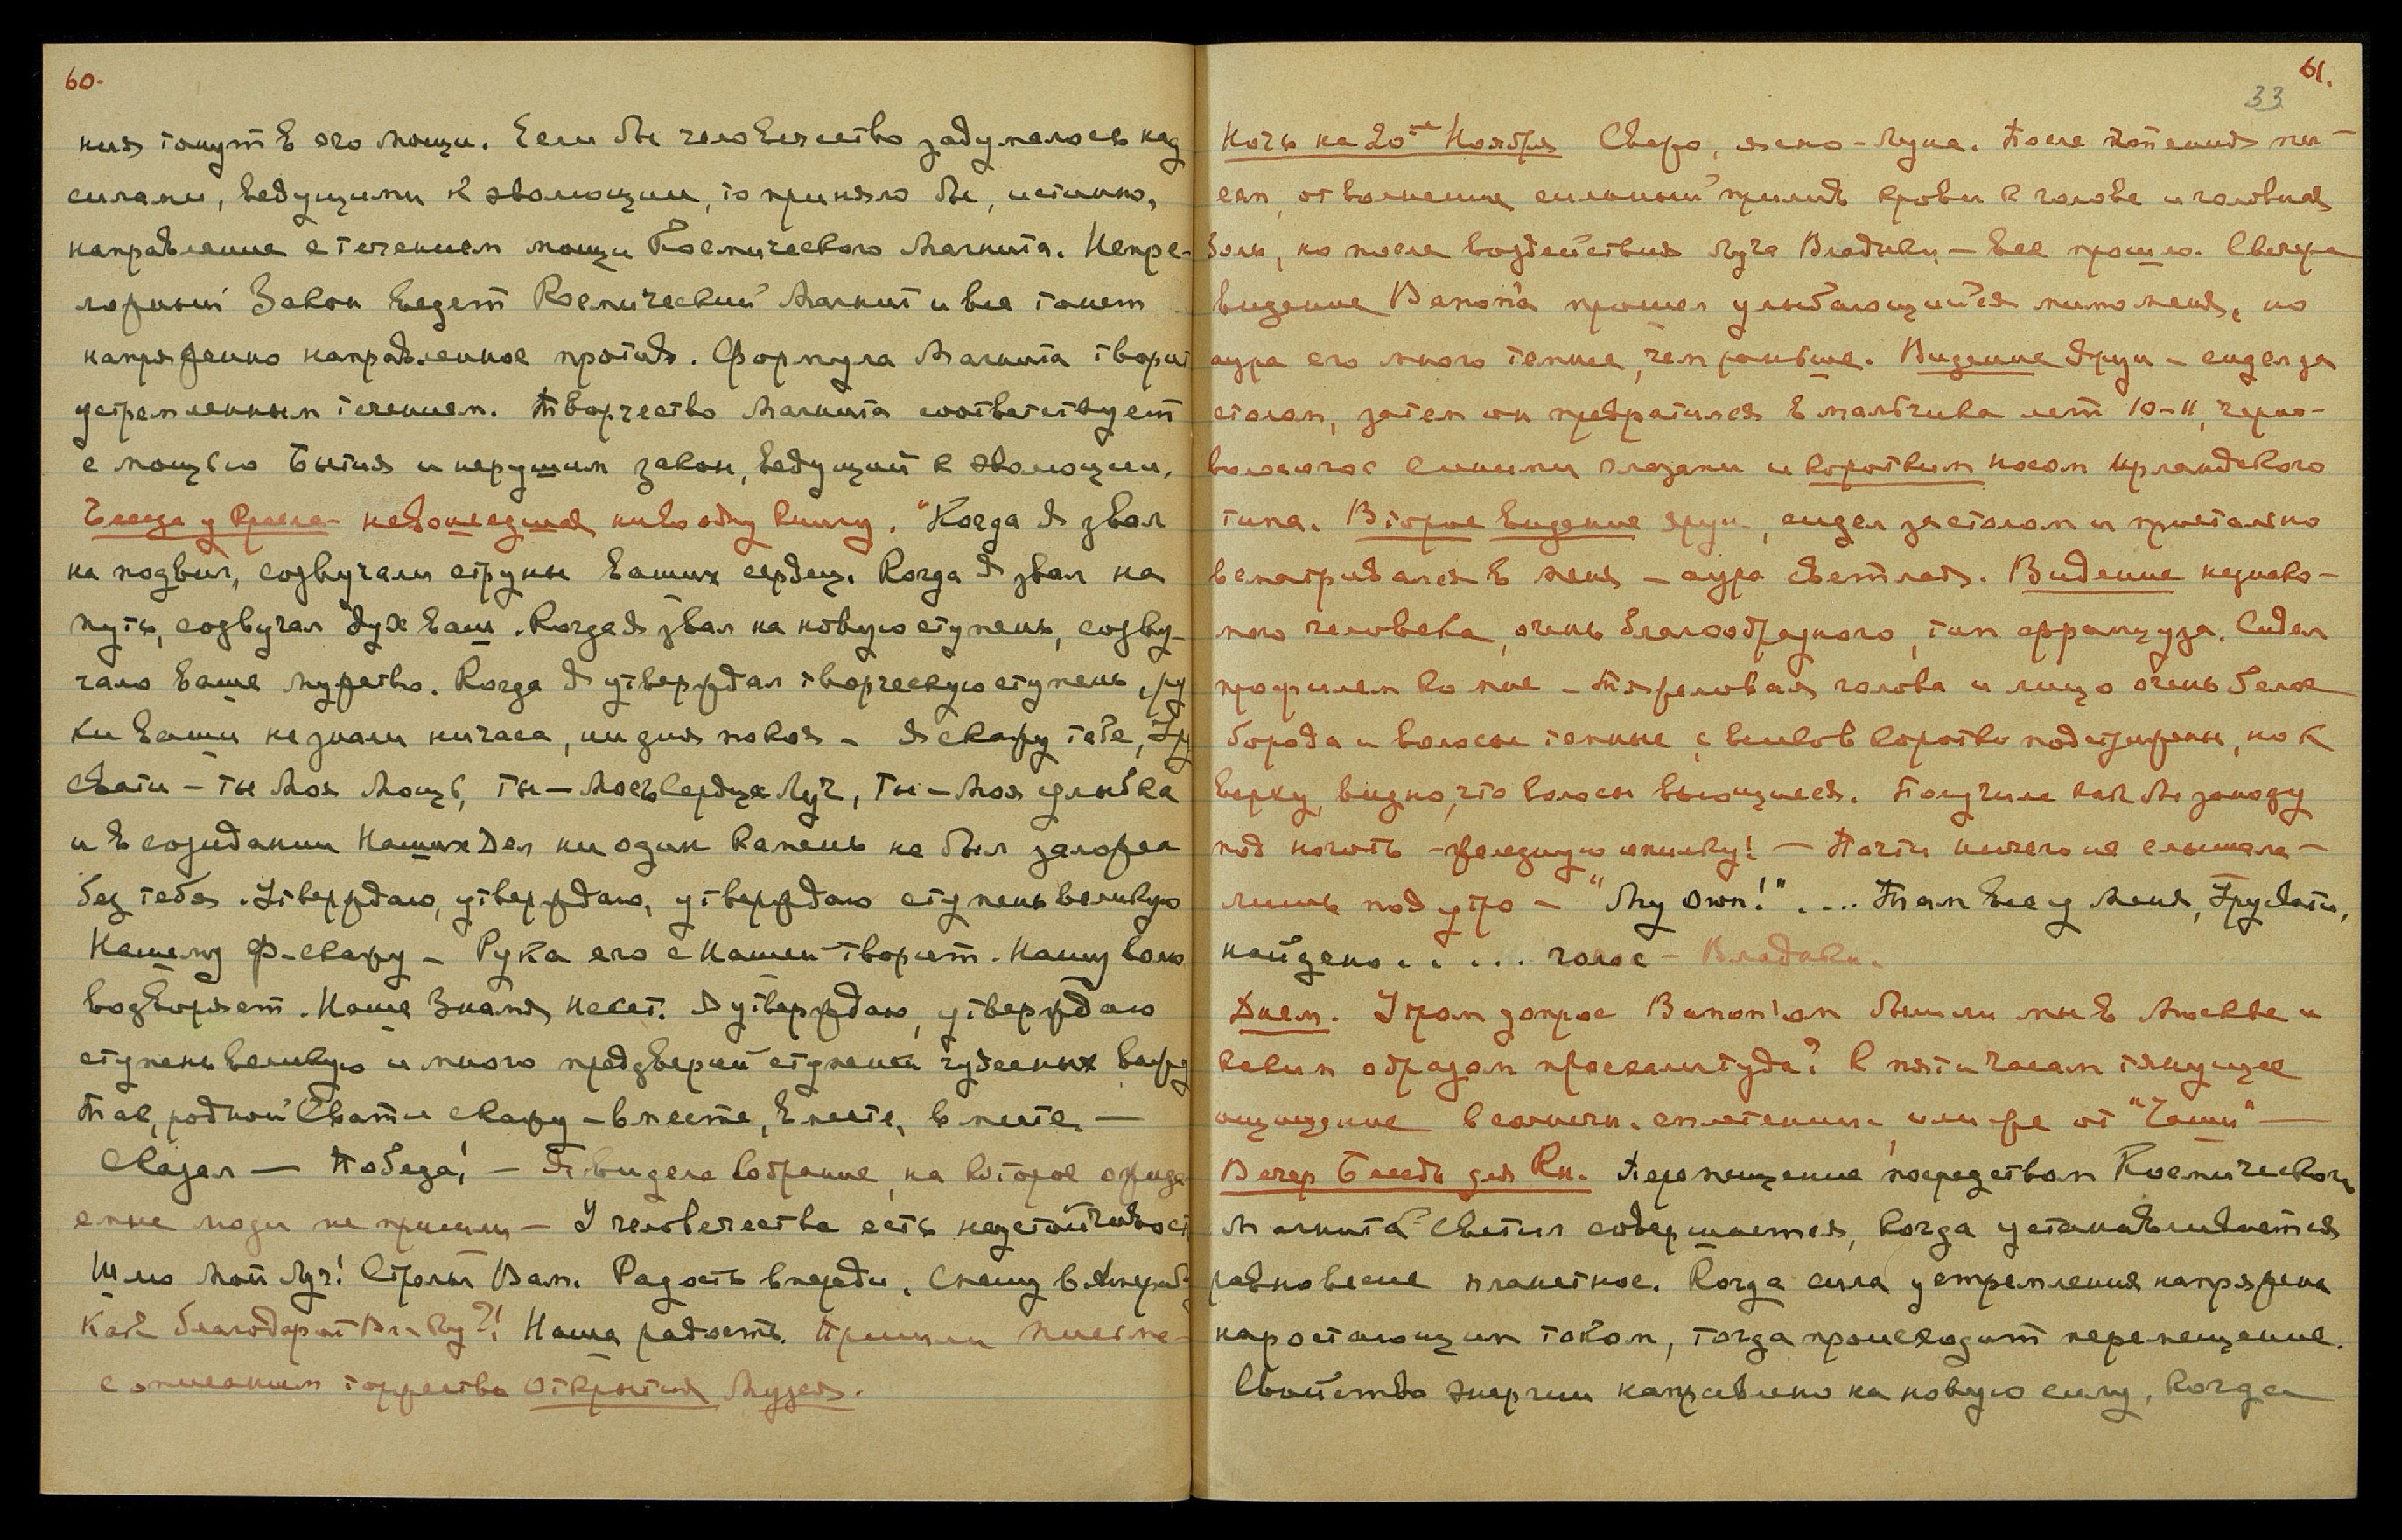 60.
ния тонут в его мощи. Если бы человечество задумалось над
силами, ведущими к эволюции, то приняло бы, истинно,
направление с течением мощи Космического Магнита. Непре-
ложный Закон ведет Космический Магнит и все тонет
напряженно направленное против. Формула Магнита творит
устремленным течением. Творчество Магнита соответствует
с мощью Бытия и нерушим закон, ведущий к эволюции.
Беседа у Кресла - невошедшая ни в одну книгу. "Когда Я звал
на подвиг, созвучали струны ваших сердец. Когда Я звал на
путь, созвучал дух ваш. Когда Я звал на новую ступень, созву-
чало ваше мужество. Когда Я утверждал творческую ступень, ру
ки ваши не знали ни часа, ни дня покоя - Я скажу тебе, Уру
свати - ты Моя Мощь, ты - Моего Сердца Луч, ты - Моя улыбка
и в созидании Наших Дел ни один камень не был заложен
без тебя. Утверждаю, утверждаю, утверждаю ступень великую
Нашему Ф- скажу - Рука его с Нашей творит. Нашу волю
водворяет. Наше Знамя несет. Я утверждаю, утверждаю
ступень великую и много преддверий ступеней чудесных вижу
Так, родной Свати скажу - вместе, вместе, вместе. —
Сказал — Победа! - Я видела собрание, на которое ожида
емые люди не пришли - У человечества есть неустойчивост
Шлю Мой Луч! Стролы Вам. Радость впереди. Спешу в Америку
Как благодарит Вл-ку?! Наша радость. Пришли письма -
с описанием торжества открытия Музея.
61.
33
Ночь на 20ое Ноября Свежо, ясно - Луна. После чтения пи-
сем, от волнения сильный прилив крови к голове и головная
боль, но после воздействия Луча Владыки - все прошло. С вечера
видение Ваnоn'а прошел улыбающийся мимо меня, но
аура его много темнее, чем раньше. Видение Яруи - сидел за
столом, затем он превратился в мальчика лет 10-11, черно-
волосого с синими глазами и коротким носом ирландского
типа. Второе видение Яруи, сидел за столом и пристально
всматривался в меня - аура светлая. Видение незнако-
мого человека, очень благообразного, тип француза. Сидел
профилем ко мне - Тяжеловатая голова и лицо очень белое
борода и волосы темные, с висков коротко подстрижены, но к
верху, видно, что волосы вьющиеся. Получила как бы занозу
под ноготь - железную опилку! - Почти ничего не слышала -
лишь под утро - "My own!" .... Там все у Меня, Урусвати,
найдено . . . . . голос - Владыки.
Днем. Утром допрос Ваnоn'ом были ли мы в Москве и
каким образом проехали туда? К пяти часам тянущее
ощущение в солнечн. сплетении, или же от "Чаши" —
Вечер Беседы для Кн. Перемещение посредством Космического
Магнита Светил совершается, когда устанавливается
равновесие планетное. Когда сила устремления напряжена
наростающим током, тогда происходит перемещение.
Свойство энергии направлено на новую силу, когда